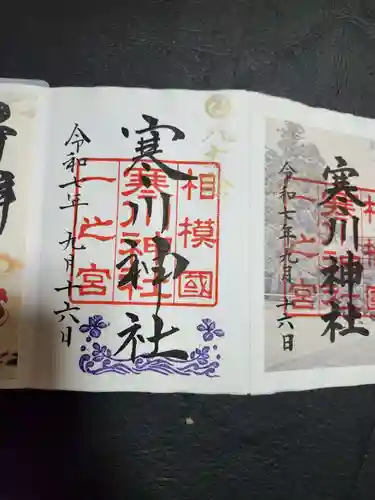 寒川神社
相模國
寒川神社
一之宮
令和七年九月十六日
寒川神社
相模國
寒川神社
一之宮
令和七年九月十六日
拝